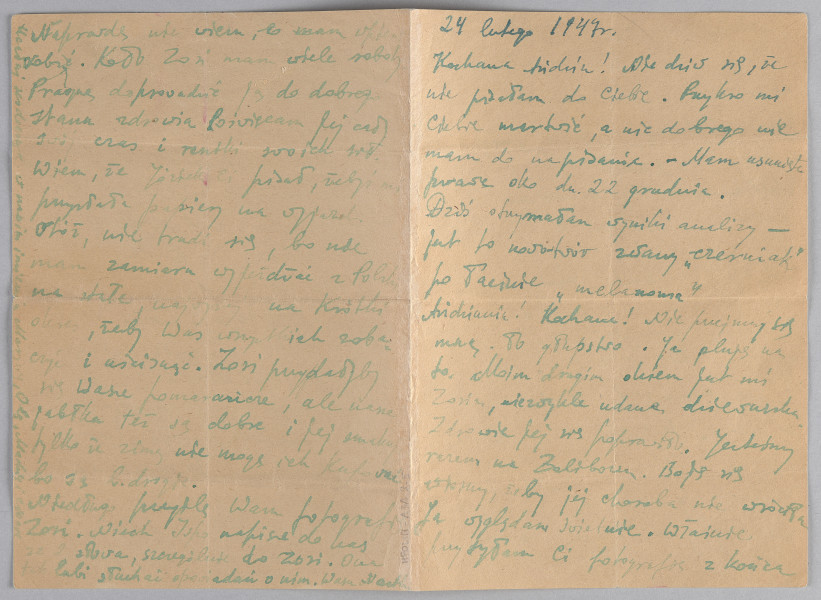 24 lutego 1947r.
Kochana ! Nie dziw się, że
nie pisałam do Ciebie. Przykro mi
Ciebie martwić, a nic dobrego nie
mam do napisania. - Mam usunięte
prawe oko dn. 22 grudnia.
Dziś otrzymałam wyniki analizy -
Jest to nowotwór zwany „czerniak"
po łacinie „melanoma"
! Kochana! Nie przejmuj się
mną. To głupstwo. Ja pluję na
to. Moim drugim okiem jest mi
Zosia, niezwykle udana dziewuszka.
Zdrowie jej się poprawiło. Jesteśmy
razem na Żoliborzu. Boję się
, żeby jej choroba nie wróciła
Ja wyglądam świetnie. Właśnie
Ci fotografię z końca
Naprawdę nie wiem, co mam
robić. Koło Zosi mam wiele roboty
Pragnę doprowadzić ją do dobrego
stanu zdrowia. Poświęcam jej cały
swój czas i resztki swoich sił.
Wiem, że pisał, żebyś mi
przysłała na wyjazd.
Otóż, nie trudź się, bo nie
mam zamiaru wyjeżdżać z Polski
na stałe, na krótki
okres, żeby Was wszystkich zoba-
czyć i uściskać. Zosi przydałyby
się Wasze pomarańcze, ale nasze
jabłka też są dobre i jej smakują
tylko że zimą nie mogę ich kupować
bo są b. drogie.
Niedługo przyślę Wam fotografię
Zosi. Niech napisze do nas
słowa, szczególnie do Zosi. Ona
tak lubi słuchać opowiadań o nim. Wasza